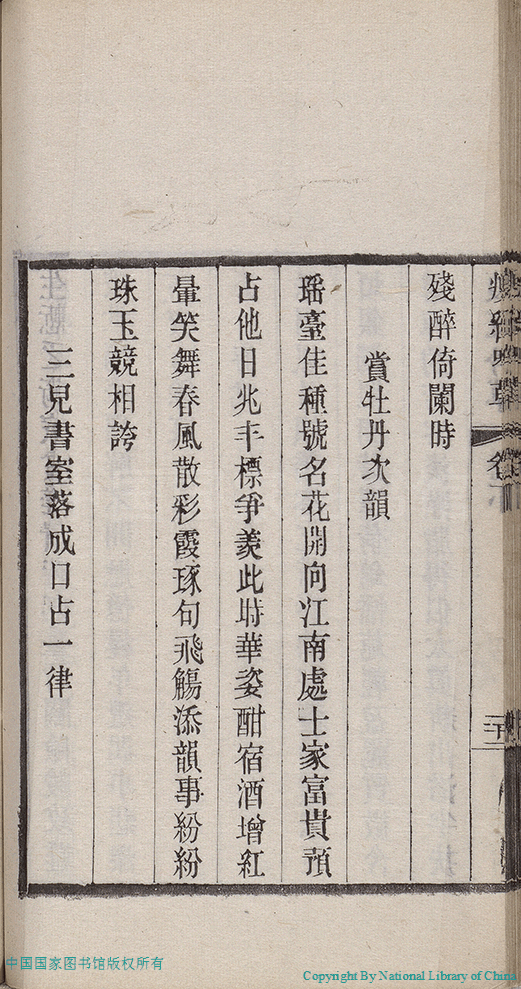 殘醉倚闌時
賞牡丹次韻
瑤臺佳種號名花開向江南處士家富貴預
占他日兆丰標爭羨此時華姿酣宿酒增紅
暈笑舞春風散彩霞琢句飛觴添韻事紛紛
珠玉競相誇
三兒書室落成口占一律
中国国家图书馆版权所有
Copyright By National Library of China